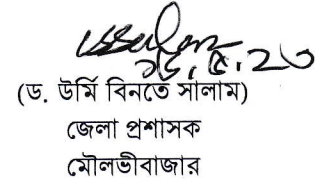 (ড. উর্মি বিনতে সালাম)
জেলা প্রশাসক
মৌলভীবাজার